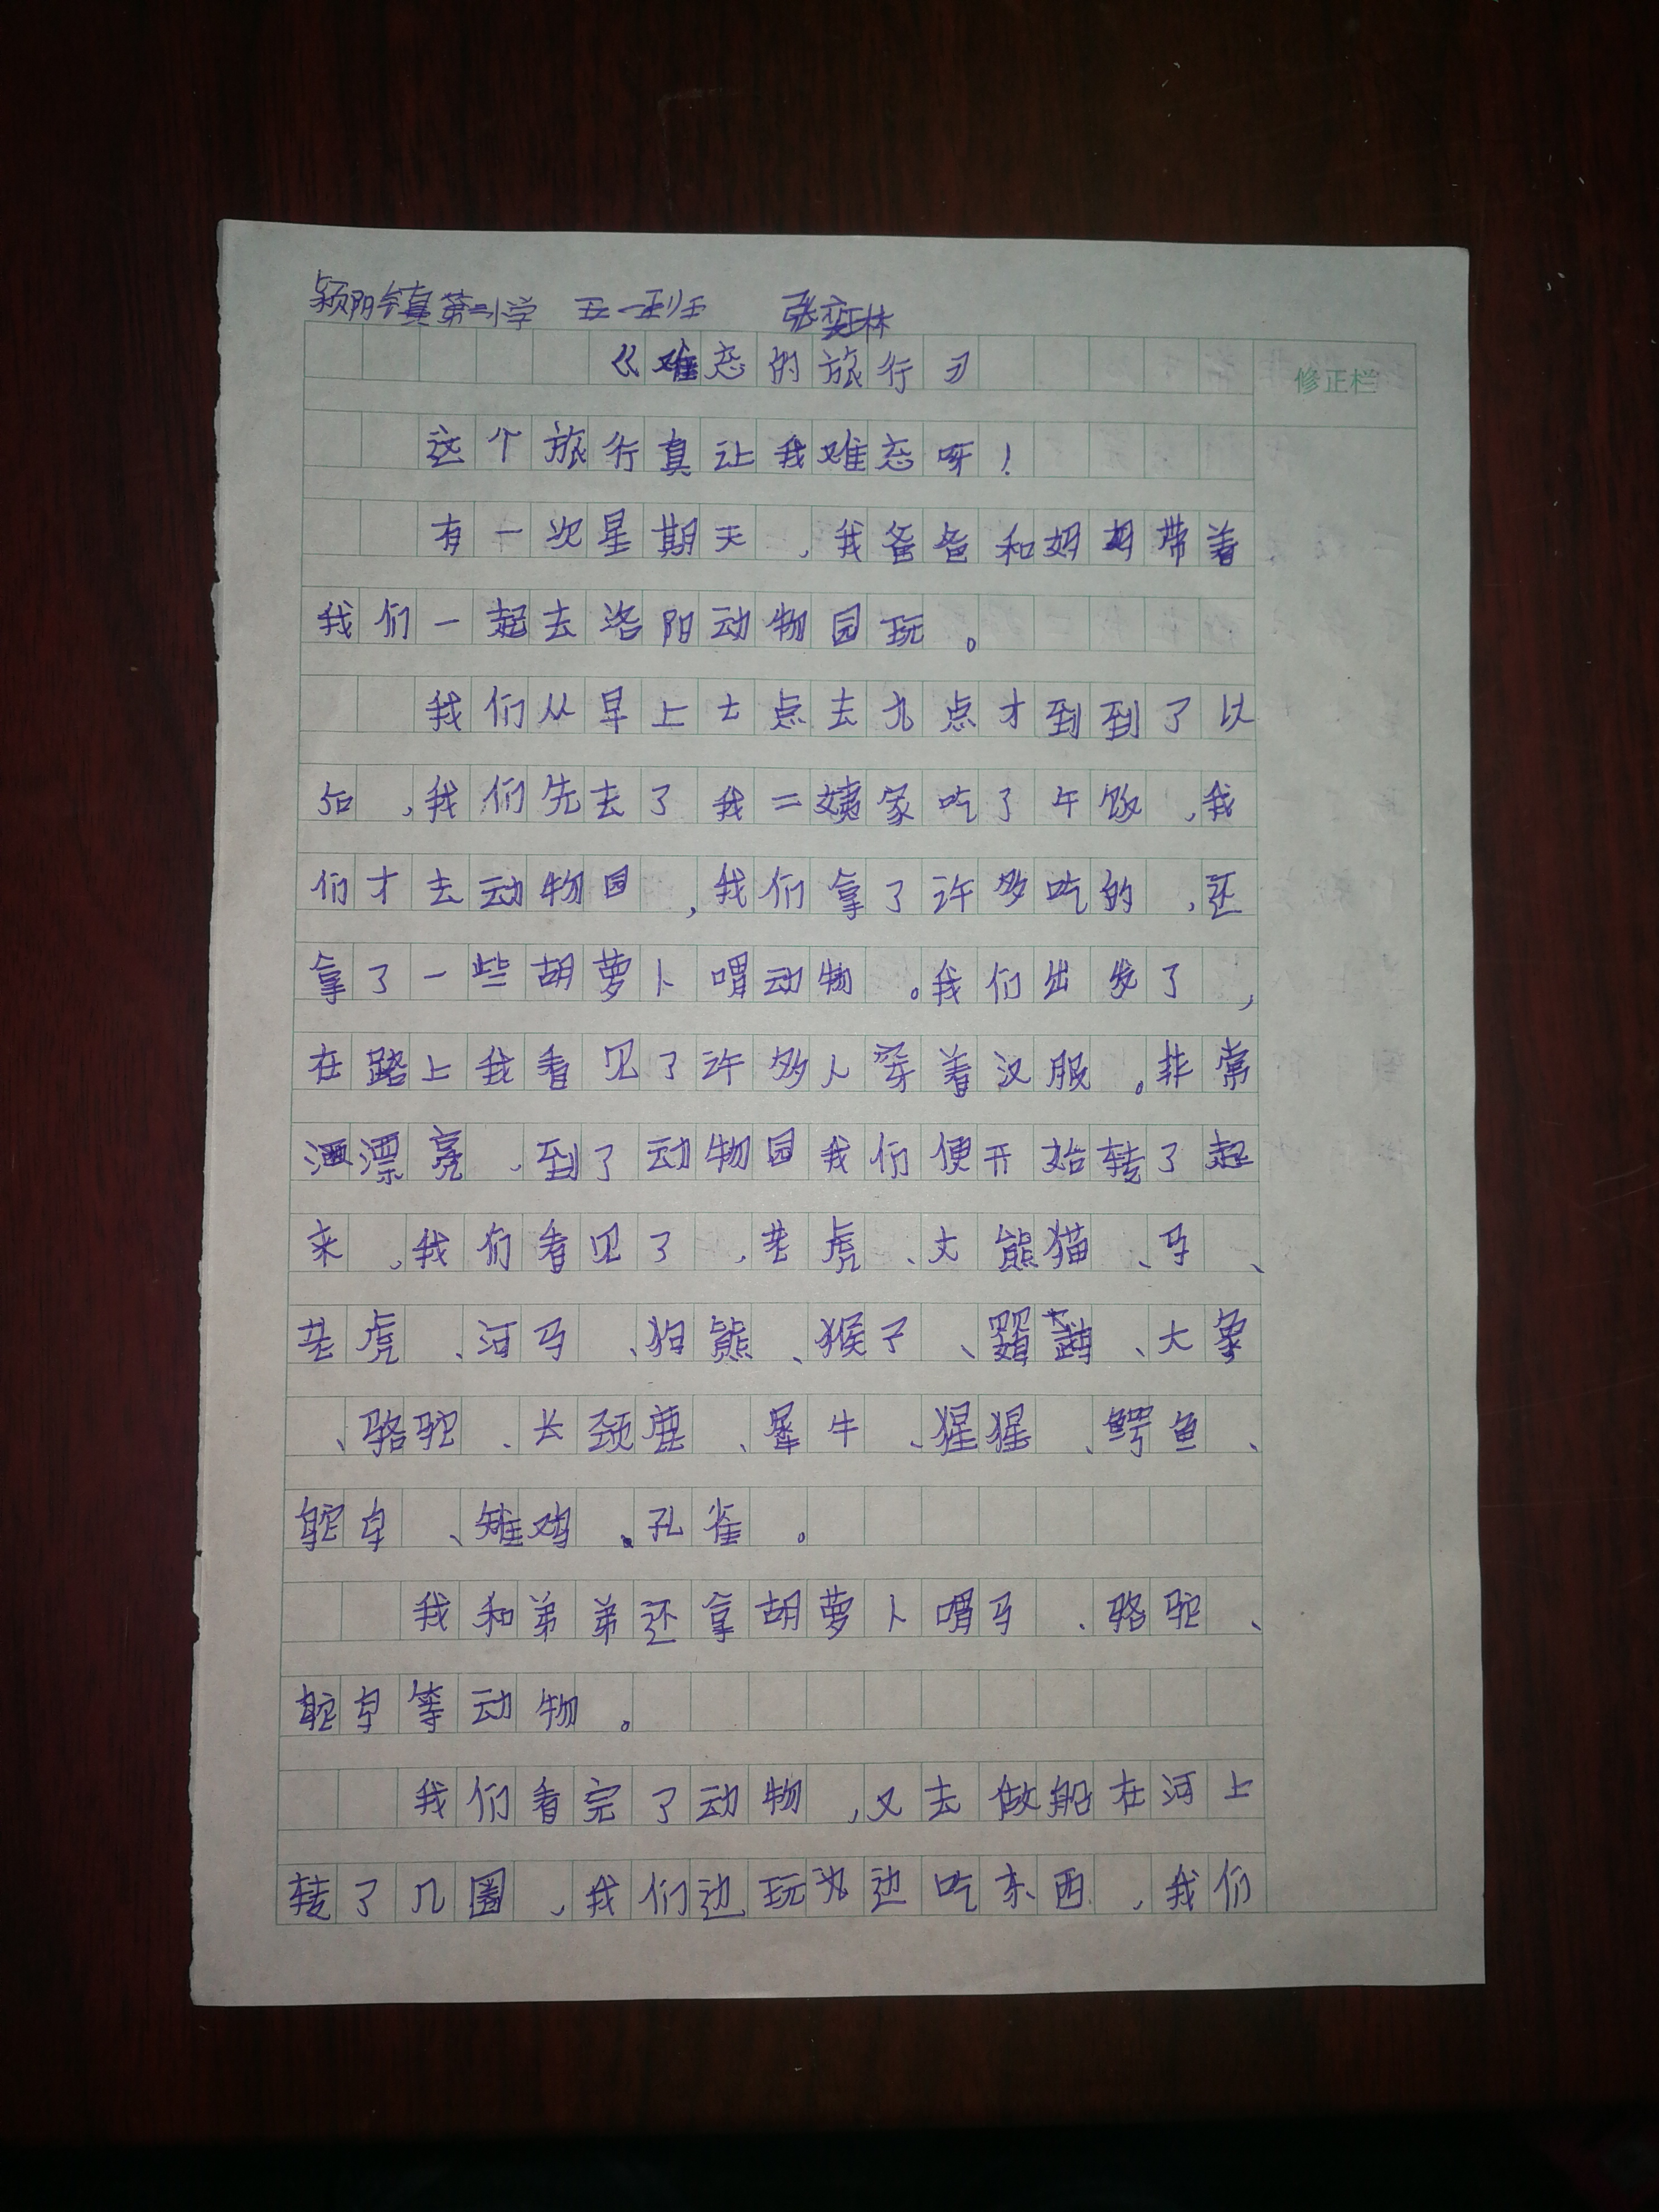 颍阳镇第二小学 五一班 张奕林
《难忘的旅行》
修正栏
这个旅行真让我难忘呀!
有一次星期天,我爸爸和妈妈带着
我们一起去洛阳动物园玩。
我们从早上七点去九点才到到了以
后,我们先去了我二姨家吃了午饭,我
们才去动物园,我们拿了许多吃的,还
拿了一些胡萝卜喂动物。我们出发了,
在路上我看见了许多人穿着汉服。非常
漂亮,到了动物园我们便开始转了起
来,我们看见了,老虎、大熊猫、马、
老虎、河马、狗熊、猴子、鹦鹉、大象
、骆驼、长颈鹿、犀牛、猩猩、鳄鱼、
鸵鸟、雉鸡、孔雀。
我和弟弟还拿胡萝卜喂马、骆驼、
鸵鸟等动物。
我们看完了动物,又去做船在河上
转了几圈,我们边玩边吃东西,我们